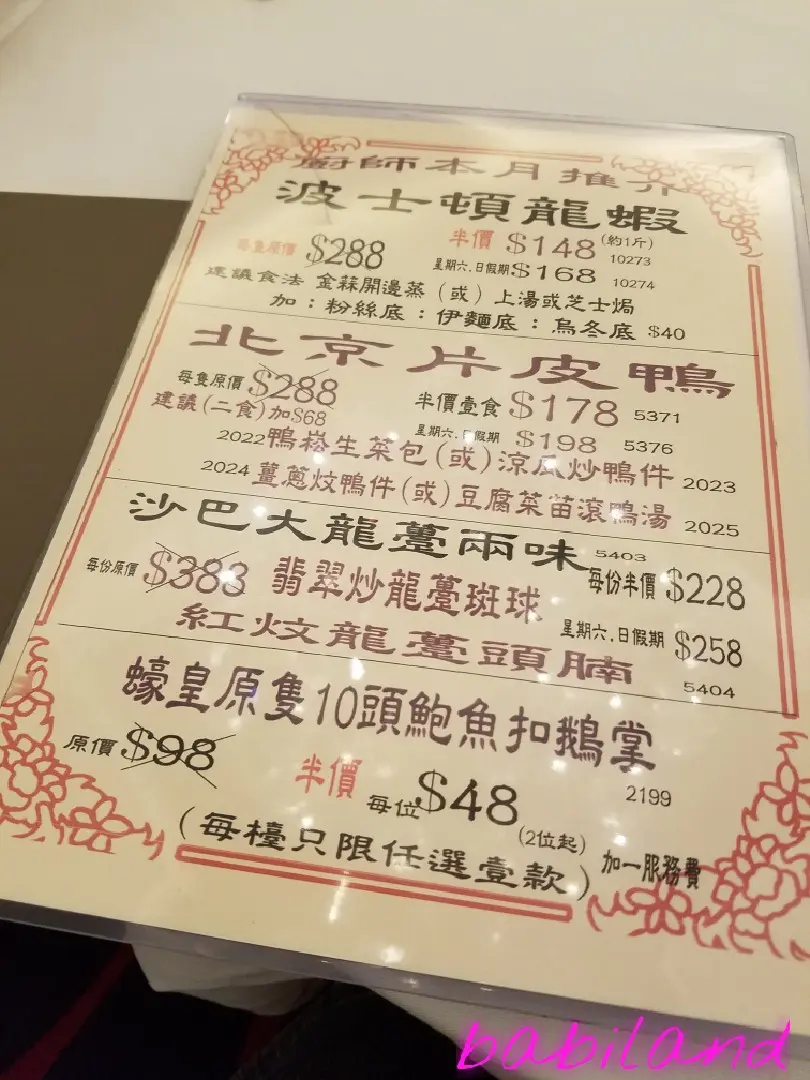 廚師本月推介
波士頓龍蝦
每隻原價 $288 半價 $148 (約1斤) 10273
星期六.日假期 $168 10274
建議食法 金蒜開邊蒸(或)上湯或芝士焗
加：粉絲底：伊麵底：烏冬底 $40
北京片皮鴨
每隻原價 $288 半價壹食 $178 5371
建議(二食)加$68 星期六.日假期 $198 5376
2022 鴨崧生菜包(或)涼瓜炒鴨件 2023
2024 薑蔥炆鴨件(或)豆腐菜苗滾鴨湯 2025
沙巴大龍躉兩味 5403
每份原價 $383 翡翠炒龍躉斑球 每份半價 $228
紅炆龍躉頭腩 星期六.日假期 $258
5404
蠔皇原隻10頭鮑魚扣鵝掌
原價 $98 半價 每位 $48 (2位起) 2199
(每檯只限任選壹款) 加一服務費
babiland